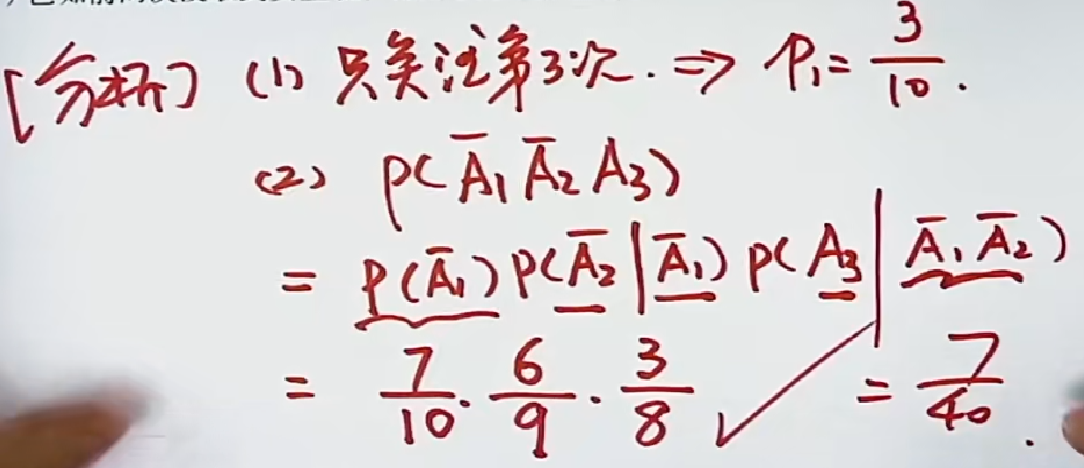 [分析] (1) 只关注第3次. ⇒ P₁ = 3/10.
(2) P(A̅₁ A̅₂ A₃)
= P(A̅₁) P(A̅₂ | A̅₁) P(A₃ | A̅₁ A̅₂)
= 7/10 · 6/9 · 3/8 ✓ = 7/40.